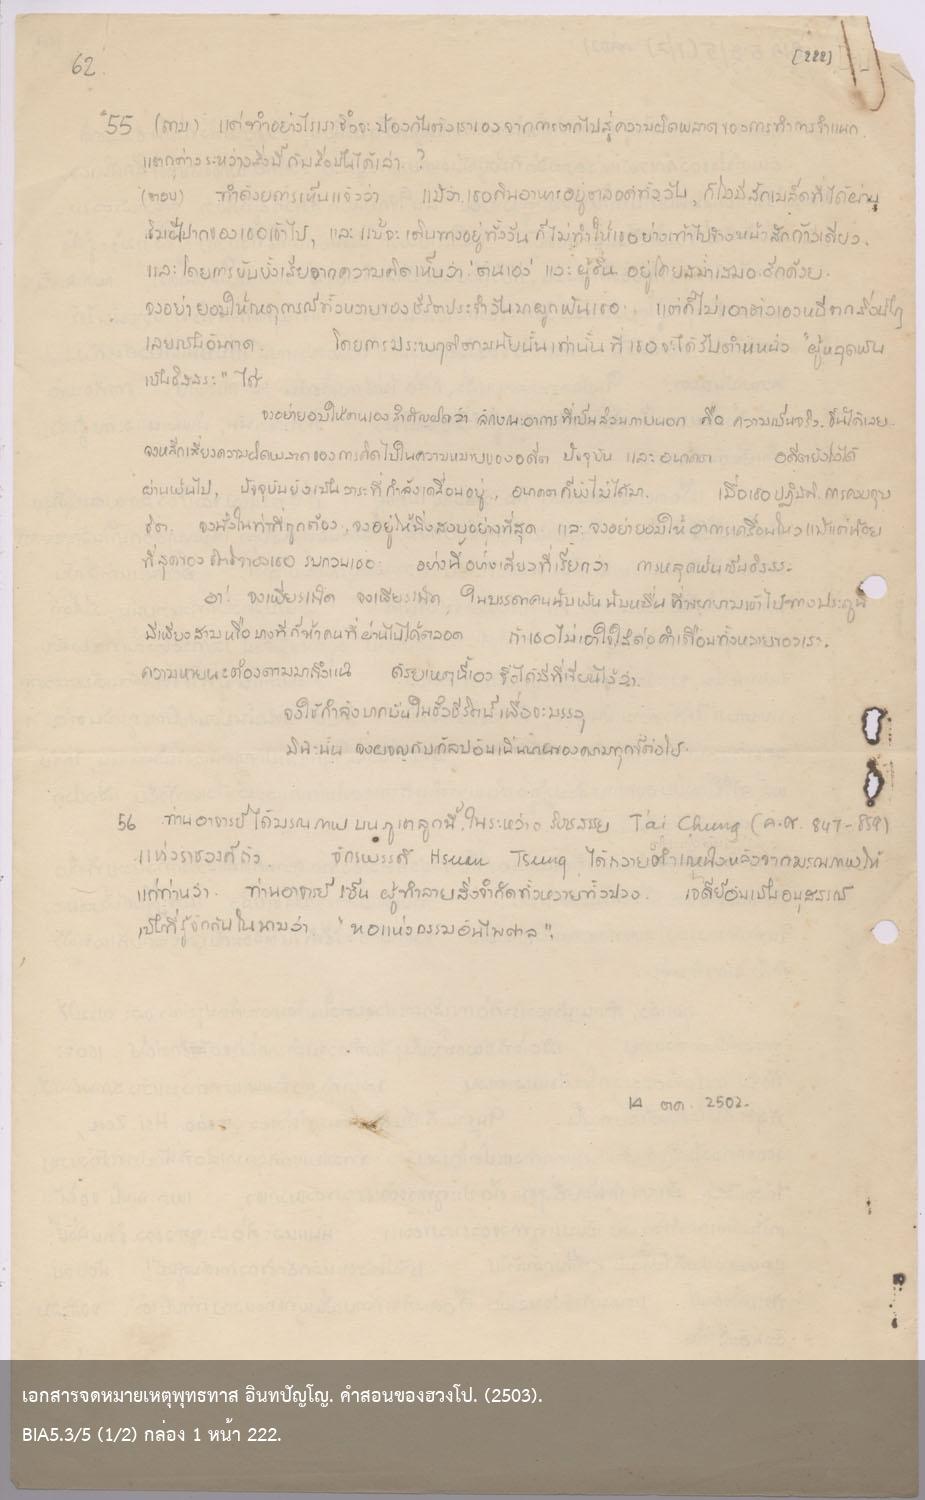 62.
[222]
55 (ถาม) แต่ทำอย่างไรเราจึงจะป้องกันตัวเราเองจากการตกไปสู่ความผิดพลาดของการทำการจำแนก
แตกต่างระหว่างสิ่งนี้กับสิ่งนั้นได้เล่า. ?
(ตอบ) ทำด้วยการเห็นแจ้งว่า แม้ว่าเธอกินอาหารอยู่ตลอดทั้งวัน, ก็ไม่มีสักเมล็ดที่ได้ผ่าน
ริมฝีปากของเธอเข้าไป, และ แม้จะเดินทางอยู่ทั้งวัน ก็ไม่ทำให้เธอย่างเท้าไปข้างหน้าสักก้าวเดียว.
และ โดยการยับยั้งเสียจากความคิดเห็นว่า "ตนเอง" และ "ผู้อื่น" อยู่โดยสม่ำเสมอ อีกด้วย.
จงอย่ายอมให้เหตุการณ์ทั้งหลายของชีวิตประจำวันมาผูกพันเธอ. แต่ก็ไม่เอาตัวเองหนีจากสิ่งใดๆ
เลยเป็นอันขาด. โดยการประพฤติตามนัยนั้นเท่านั้น ที่เธอจะได้รับตำแหน่ง "ผู้หลุดพ้น
เป็นอิสสระ" ได้
จงอย่ายอมให้ตนเองสำคัญผิดว่า ลักษณะอาการที่เป็นส่วนภายนอก คือ ความเป็นจริง ขึ้นได้เลย.
จงหลีกเลี่ยงความผิดพลาดของการคิดไปในความหมายของอดีต ปัจจุบัน และอนาคต อดีตยังไม่ได้
ผ่านพ้นไป, ปัจจุบันยังเป็นวาระที่กำลังเคลื่อนอยู่, อนาคตก็ยังไม่ได้มา. เมื่อเธอปฏิบัติ การควบคุม
จิต. จงนั่งในท่าที่ถูกต้อง, จงอยู่ให้นิ่งสงบอย่างที่สุด และ จงอย่ายอมให้อาการเคลื่อนไหวแม้แต่น้อย
ที่สุดของจิตใจของเธอ รบกวนเธอ อย่างนี้อย่างเดียวที่เรียกว่า การหลุดพ้นเป็นอิสสระ
อา! จงเพียรเถิด จงเพียรเถิด, ในบรรดาคนนับพันนับหมื่น ที่พยายามเข้าไปทางประตูนี้
มีเพียงสามหรือบางทีก็ห้าคนที่ผ่านไปได้ตลอด ถ้าเธอไม่เอาใจใส่ต่อคำเตือนทั้งหลายของเรา.
ความหายนะต้องตามมาถึงแน่ ด้วยเหตุนี้เอง จึงได้มีที่เขียนไว้ว่า.
จงใช้กำลังบากบั่นในชั่วชีวิตนี้ เพื่อจะบรรลุ
มิฉะนั้น จงผจญกับกัลป์อันเนิ่นนานของความทุกข์ต่อไป.
56 ท่านอาจารย์ได้มรณภาพบนภูเขาลูกนี้ ในระหว่างรัชสมัย Tai Chung (ค.ศ. 847-859)
แห่งราชวงศ์ถัง. จักรพรรดิ์ Hsuan Tsung ได้ถวายตำแหน่งหลังจากมรณภาพให้
แก่ท่านว่า ท่านอาจารย์เซ็น ผู้ทำลายสิ่งจำกัดทั้งหลายทั้งปวง. เจดีย์อันเป็นอนุสรณ์
เป็นที่รู้จักกันในนามว่า "หอแห่งธรรมอันไพศาล".
14 ตค. 2502.
เอกสารจดหมายเหตุพุทธทาส อินทปัญโญ. คำสอนของฮวงโป. (2503).
BIA5.3/5 (1/2) กล่อง 1 หน้า 222.